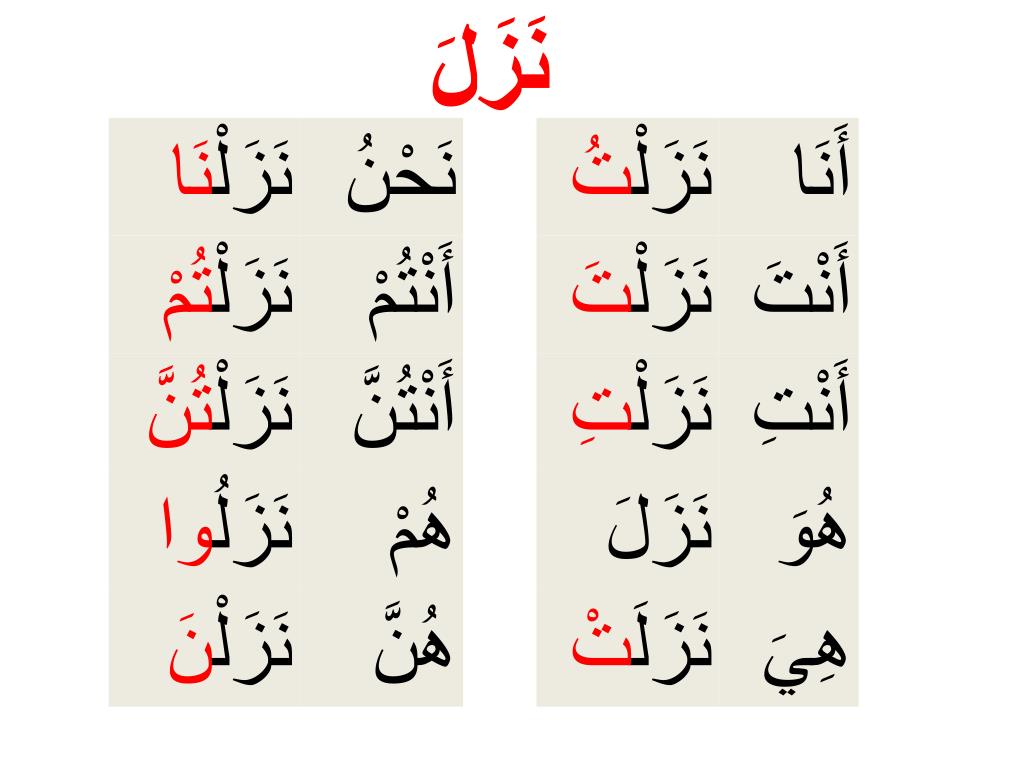 نَزَلَ
أَنَا نَزَلْتُ نَحْنُ نَزَلْنَا
أَنْتَ نَزَلْتَ أَنْتُمْ نَزَلْتُمْ
أَنْتِ نَزَلْتِ أَنْتُنَّ نَزَلْتُنَّ
هُوَ نَزَلَ هُمْ نَزَلُوا
هِيَ نَزَلَتْ هُنَّ نَزَلْنَ